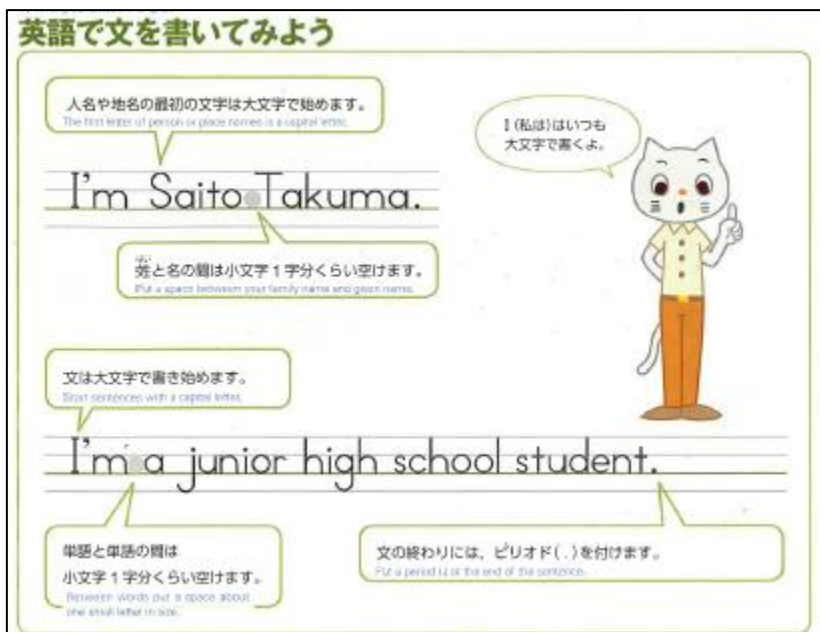 英語で文を書いてみよう
人名や地名の最初の文字は大文字で始めます。
The first letter of person or place names is a capital letter.
I(私は)はいつも
大文字で書くよ。
I'm Saito Takuma.
せい
姓と名の間は小文字1字分くらい空けます。
Put a space between your family name and given name.
文は大文字で書き始めます。
Start sentences with a capital letter.
I'm a junior high school student.
単語と単語の間は
小文字1字分くらい空けます。
Between words put a space about
one small letter in size.
文の終わりには，ピリオド(.)を付けます。
Put a period (.) at the end of the sentence.